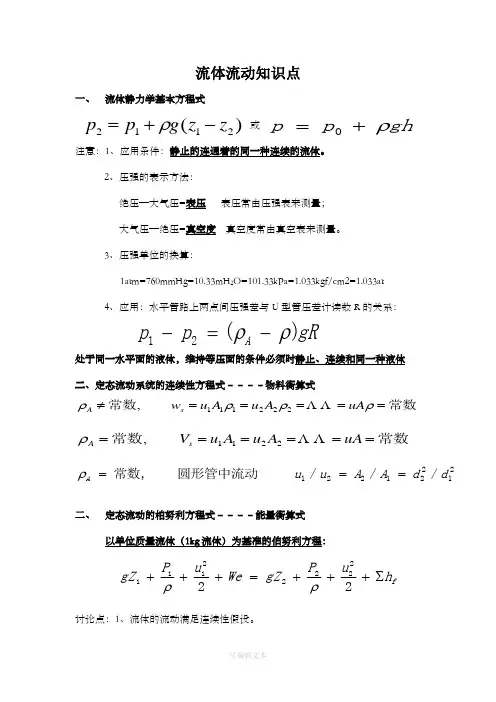 流体流动知识点
一、 流体静力学基本方程式
p₂ = p₁ + ρg(z₁ − z₂) 或 p = p₀ + ρgh
注意：1、应用条件：静止的连通着的同一种连续的流体。
2、压强的表示方法：
绝压—大气压=表压 表压常由压强表来测量；
大气压—绝压=真空度 真空度常由真空表来测量。
3、压强单位的换算：
1atm=760mmHg=10.33mH₂O=101.33kPa=1.033kgf/cm2=1.033at
4、应用：水平管路上两点间压强差与 U 型管压差计读数 R 的关系：
p₁ − p₂ = (ρ_A − ρ)gR
处于同一水平面的液体，维持等压面的条件必须时静止、连续和同一种液体
二、定态流动系统的连续性方程式－－－－物料衡算式
ρ_A ≠ 常数, w_s = u₁A₁ρ₁ = u₂A₂ρ₂ = Λ Λ = uAρ = 常数
ρ_A = 常数, V_s = u₁A₁ = u₂A₂ = Λ Λ = uA = 常数
ρ_A = 常数, 圆形管中流动 u₁ / u₂ = A₂ / A₁ = d₂² / d₁²
二、 定态流动的柏努利方程式－－－－能量衡算式
以单位质量流体（1kg流体）为基准的伯努利方程：
gZ₁ + P₁/ρ + u₁²/2 + We = gZ₂ + P₂/ρ + u₂²/2 + Σh_f
讨论点：1、流体的流动满足连续性假设。